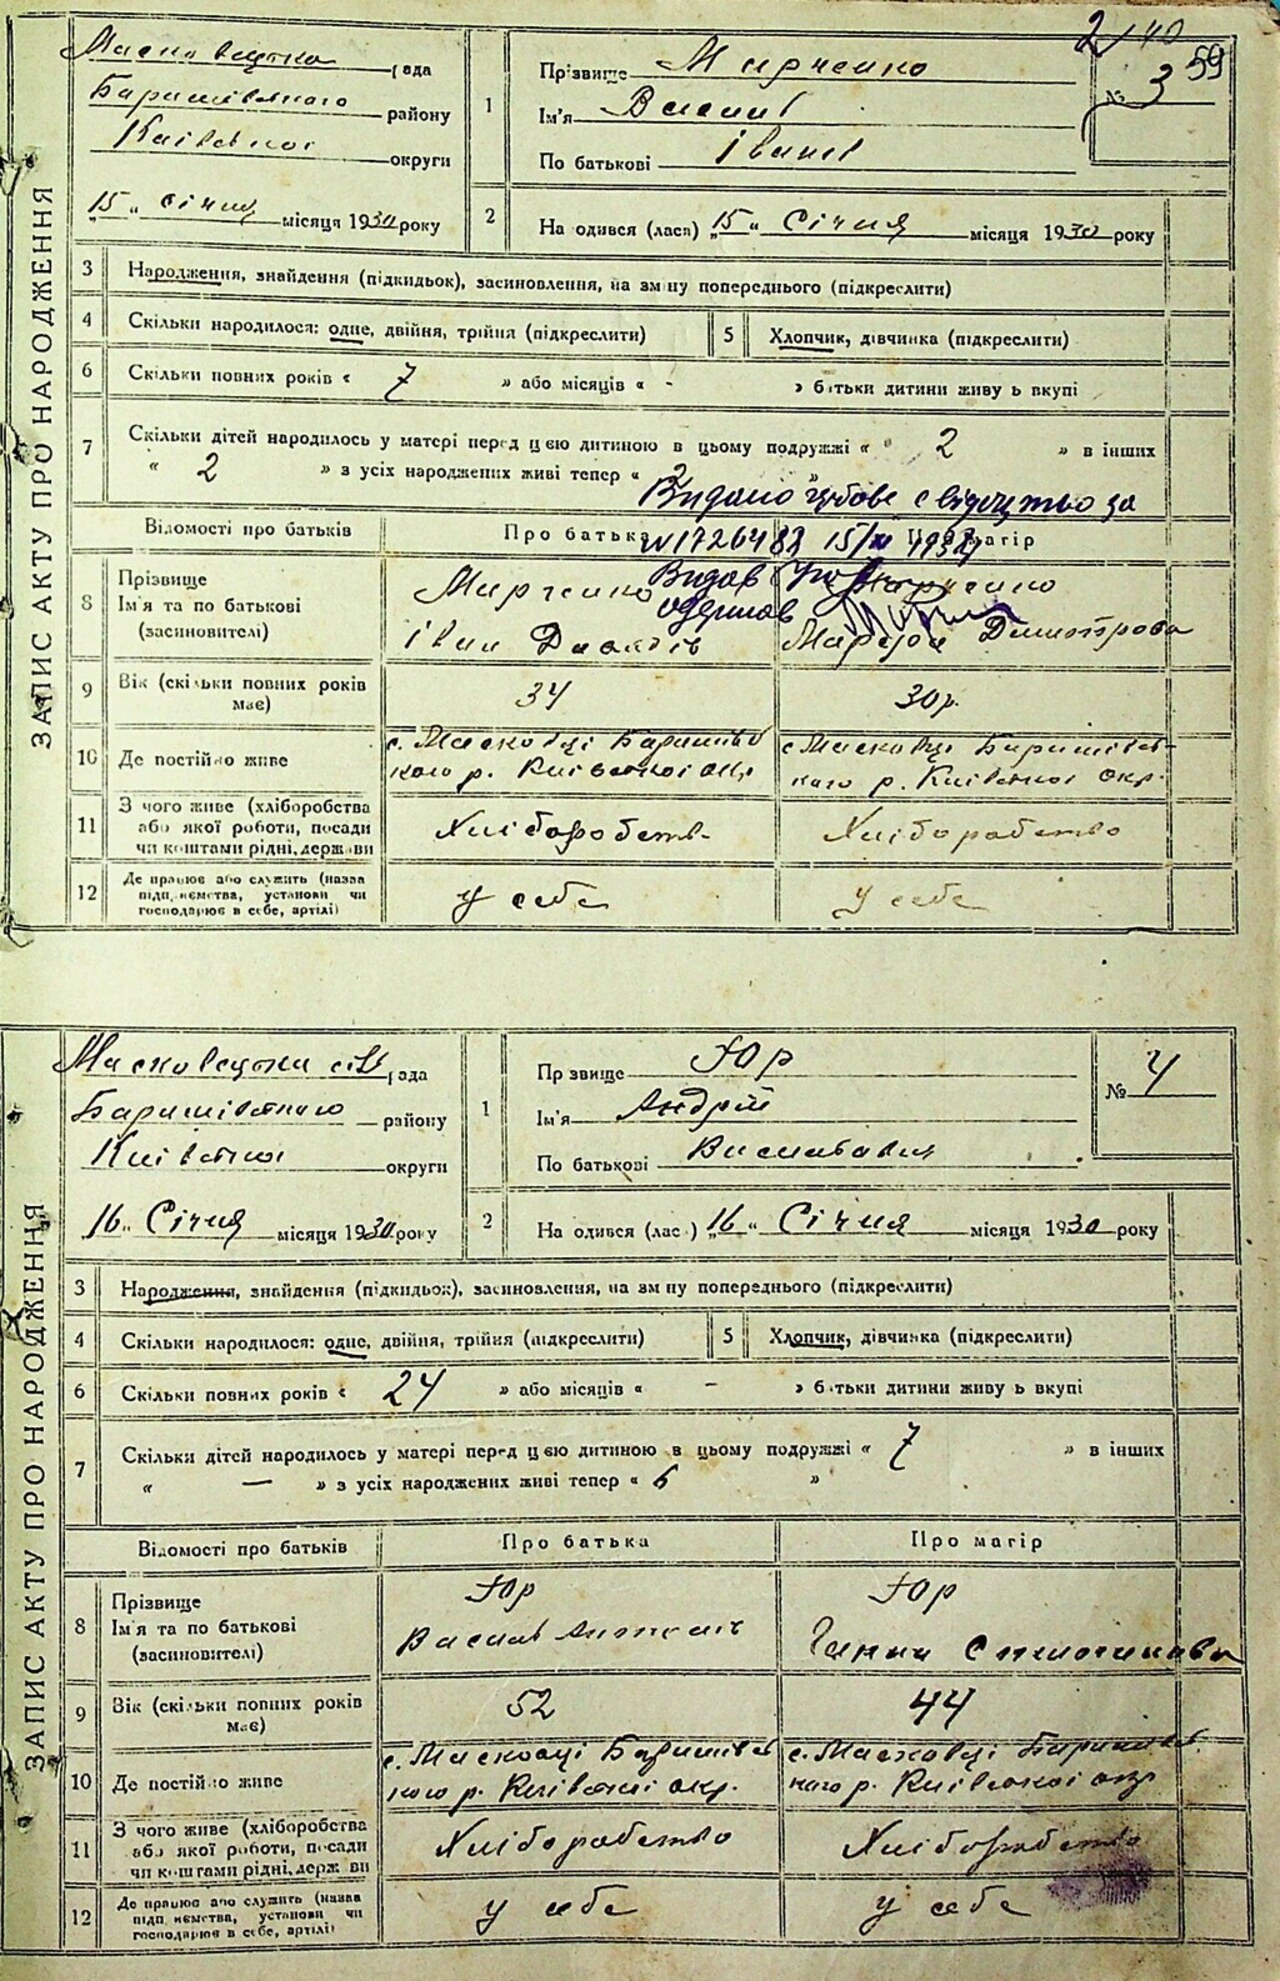 2/40
59
ЗАПИС АКТУ ПРО НАРОДЖЕННЯ
Масковецька рада
Баришівського району
Київської округи
„15“ січня місяця 1930 року
1
Прізвище Марченко
Ім'я Василь
По батькові Іванів
№ 3
2
На одився (лася) „15“ Січня місяця 1930 року
3 Народження, знайдення (підкидьок), засиновлення, на зміну попереднього (підкреслити)
4 Скільки народилося: одне, двійня, трійня (підкреслити)
5 Хлопчик, дівчинка (підкреслити)
6 Скільки повних років « 7 » або місяців « - » батьки дитини живуть вкупі
7 Скільки дітей народилось у матері перед цією дитиною в цьому подружжі « 2 » в інших
« 2 » з усіх народжених живі тепер « 2 »
Видано свідоцтво за
№ 1726482 15/
Видав
одержав
Відомості про батьків Про батька Про матір
8 Прізвище Марченко Марченко
Ім'я та по батькові
(засиновителі) Іван Давидів Марія Дмитрова
9 Вік (скільки повних років має) 34 30 р.
10 Де постійно живе с. Масковці Баришівського р. Київської окр. с. Масковці Баришівського р. Київської окр.
11 З чого живе (хліборобства або якої роботи, посади чи коштами рідні, держави Хліборобств. Хлібо робство
12 Де працює або служить (назва підприємства, установи чи господарює в себе, артілі) у себе у себе
ЗАПИС АКТУ ПРО НАРОДЖЕННЯ
Масковецька рада
Баришівського району
Київської округи
„16“ Січня місяця 1930 року
1
Прізвище Юр
Ім'я Андрій
По батькові
№ 4
2
На одився (лас ) „16“ Січня місяця 1930 року
3 Народження, знайдення (підкидьок), засиновлення, на зміну попереднього (підкреслити)
4 Скільки народилося: одне, двійня, трійня (підкреслити)
5 Хлопчик, дівчинка (підкреслити)
6 Скільки повних років « 24 » або місяців « - » батьки дитини живуть вкупі
7 Скільки дітей народилось у матері перед цією дитиною в цьому подружжі « 7 » в інших
« — » з усіх народжених живі тепер « 6 »
Відомості про батьків Про батька Про матір
8 Прізвище Юр Юр
Ім'я та по батькові
(засиновителі) Ганна
9 Вік (скільки повних років має) 52 44
10 Де постійно живе с. Масковці Баришівського р. Київської окр. с. Масковці Баришівського р. Київської окр.
11 З чого живе (хліборобства або якої роботи, посади чи коштами рідні, держави Хлібо робство Хліборобство
12 Де працює або служить (назва підприємства, установи чи господарює в себе, артілі) у себе у себе